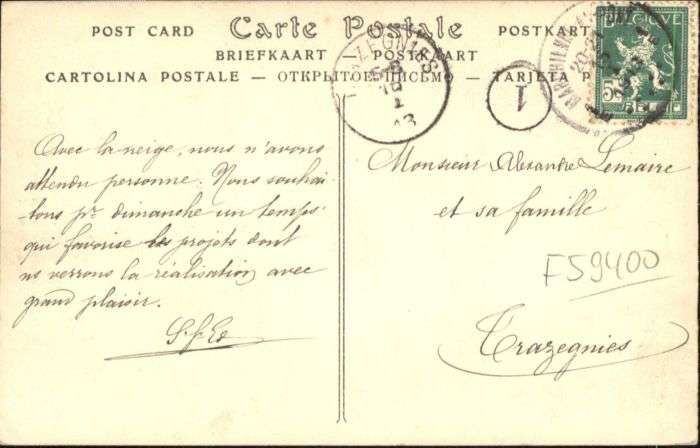 POST CARD Carte Postale POSTKART
BRIEFKAART — POSTKAART
CARTOLINA POSTALE — ОТКРЫТОЕ ПИСЬМО — TARJETA P
TRAZEGNIES
13
1
MARCHIENNE
BELGIQUE
5
BELGIË
Avec la neige, nous n'avons
attendu personne. Nous souhai-
tons pr dimanche un temps
qui favorise les projets dont
ns verrons la réalisation avec
grand plaisir.
Monsieur Alexandre Lemaire
et sa famille
F59400
Trazegnies